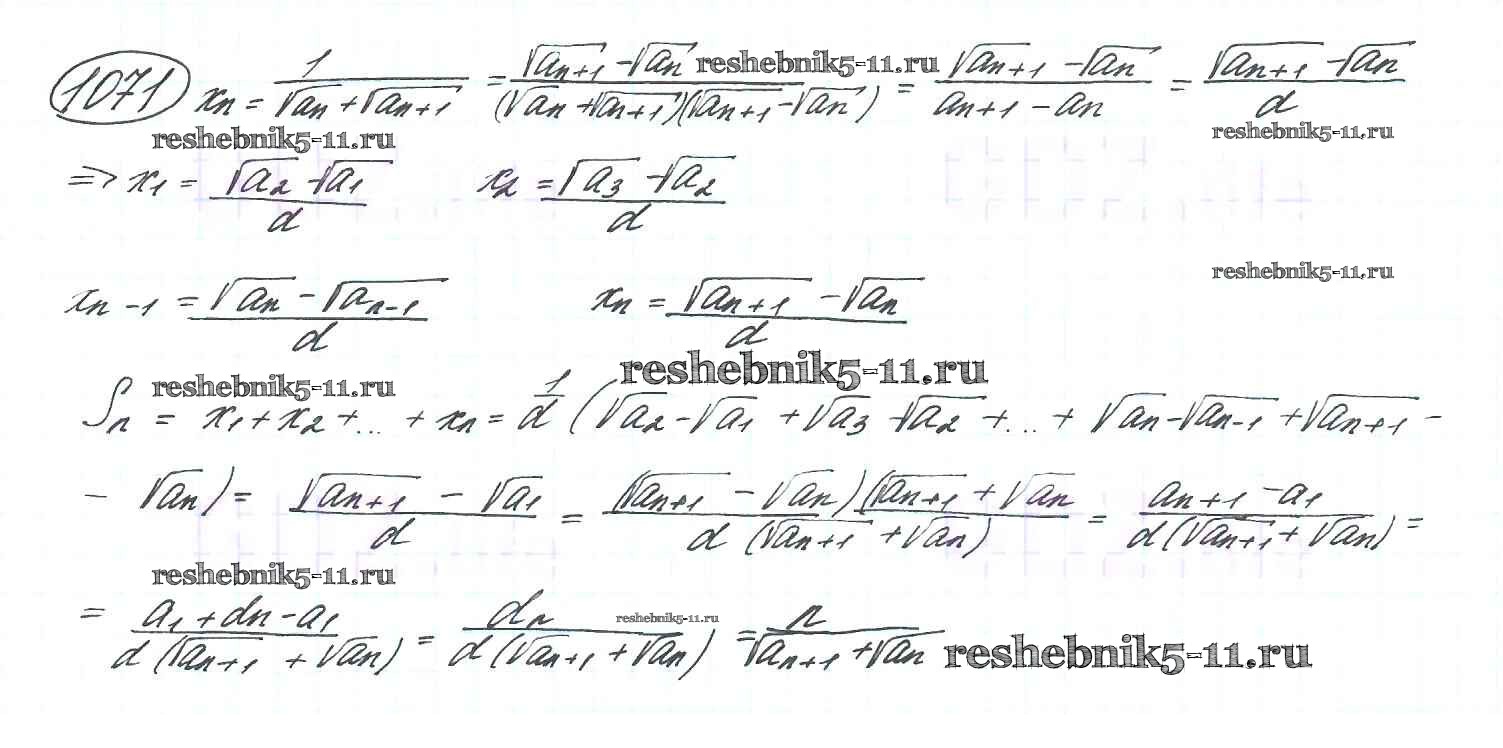 1071 xₙ = 1/(√aₙ + √aₙ₊₁) = (√aₙ₊₁ - √aₙ)/((√aₙ + √aₙ₊₁)(√aₙ₊₁ - √aₙ)) = (√aₙ₊₁ - √aₙ)/(aₙ₊₁ - aₙ) = (√aₙ₊₁ - √aₙ)/d
reshebnik5-11.ru
reshebnik5-11.ru reshebnik5-11.ru
=> x₁ = (√a₂ - √a₁)/d x₂ = (√a₃ - √a₂)/d
reshebnik5-11.ru
xₙ₋₁ = (√aₙ - √aₙ₋₁)/d xₙ = (√aₙ₊₁ - √aₙ)/d
reshebnik5-11.ru reshebnik5-11.ru
Sₙ = x₁ + x₂ + ... + xₙ = 1/d (√a₂ - √a₁ + √a₃ - √a₂ + ... + √aₙ - √aₙ₋₁ + √aₙ₊₁ -
- √aₙ) = (√aₙ₊₁ - √a₁)/d = (√aₙ₊₁ - √aₙ)(√aₙ₊₁ + √aₙ/(d(√aₙ₊₁ + √aₙ)) = (aₙ₊₁ - a₁)/(d(√aₙ₊₁ + √aₙ)) =
reshebnik5-11.ru
= (a₁ + dn - a₁)/(d(√aₙ₊₁ + √aₙ)) = dn/(d(√aₙ₊₁ + √aₙ)) = n/(√aₙ₊₁ + √aₙ)
reshebnik5-11.ru reshebnik5-11.ru